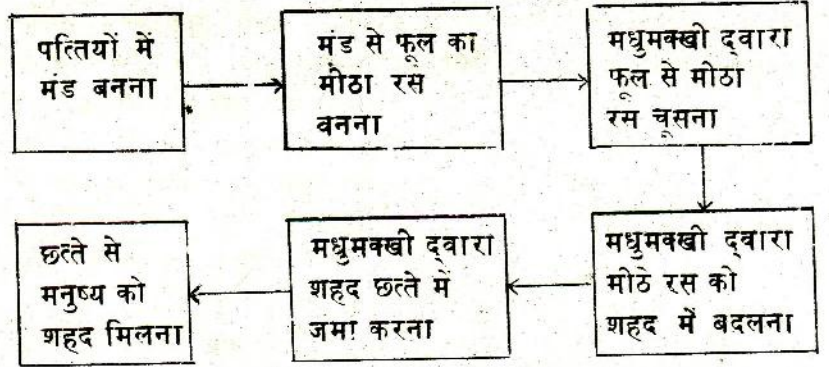 पत्तियों में
मंड बनना
मंड से फूल का
मीठा रस
वनना
मधुमक्खी द्वारा
फूल से मीठा
रस चूसना
मधुमक्खी द्वारा
मीठे रस को
शहद में बदलना
मधुमक्खी द्वारा
शहद छत्ते में
जमा करना
छत्ते से
मनुष्य को
शहद मिलना